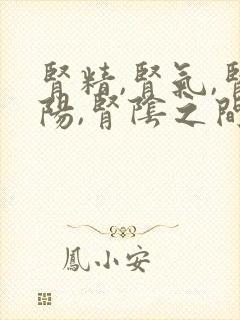 腎精,腎氣,腎
陽,腎陰之間
鳳小安